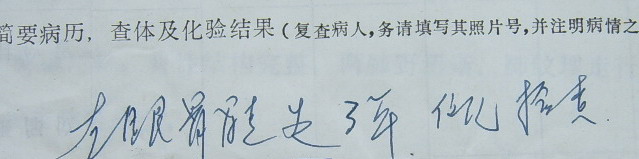 简要病历，查体及化验结果（复查病人，务请填写其照片号，并注明病情之
左眼胃 3年 检查